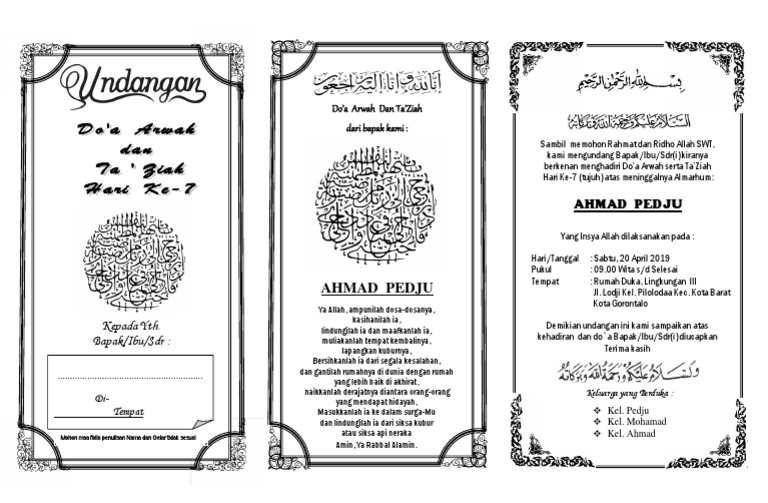 Undangan
Do'a Arwah
dan
Ta'Ziah
Hari Ke-7
Kepada Yth.
Bapak/Ibu/Sdr :
Di-
Tempat
Mohon maaf bila penulisan Nama dan Gelar tidak sesuai
إنا لله وإنا إليه راجعون
Do'a Arwah Dan Ta'Ziah
dari bapak kami :
AHMAD PEDJU
Ya Allah, ampunilah dosa-dosanya,
kasihanilah ia,
lindungilah ia dan maafkanlah ia,
muliakanlah tempat kembalinya,
lapangkan kuburnya,
Bersihkanlah ia dari segala kesalahan,
dan gantilah rumahnya di dunia dengan rumah
yang lebih baik di akhirat,
naikkanlah derajatnya diantara orang-orang
yang mendapat hidayah,
Masukkanlah ia ke dalam surga-Mu
dan lindungilah ia dari siksa kubur
atau siksa api neraka
Amin, Ya Rabbal Alamin.
بسم الله الرحمن الرحيم
السلام عليكم ورحمة الله وبركاته
Sambil memohon Rahmat dan Ridho Allah SWT,
kami mengundang Bapak/Ibu/Sdr(i) kiranya
berkenan menghadiri Do'a Arwah serta Ta'Ziah
Hari Ke-7 (tujuh) atas meninggalnya Almarhum :
AHMAD PEDJU
Yang Insya Allah dilaksanakan pada :
Hari/Tanggal : Sabtu, 20 April 2019
Pukul : 09.00 Wita s/d Selesai
Tempat : Rumah Duka, Lingkungan III
Jl. Lodji Kel. Pilolodaa Kec. Kota Barat
Kota Gorontalo
Demikian undangan ini kami sampaikan atas
kehadiran dan do`a Bapak/Ibu/Sdr(i) diucapkan
Terima kasih
والسلام عليكم ورحمة الله وبركاته
Keluarga yang Berduka :
❖ Kel. Pedju
❖ Kel. Mohamad
❖ Kel. Ahmad